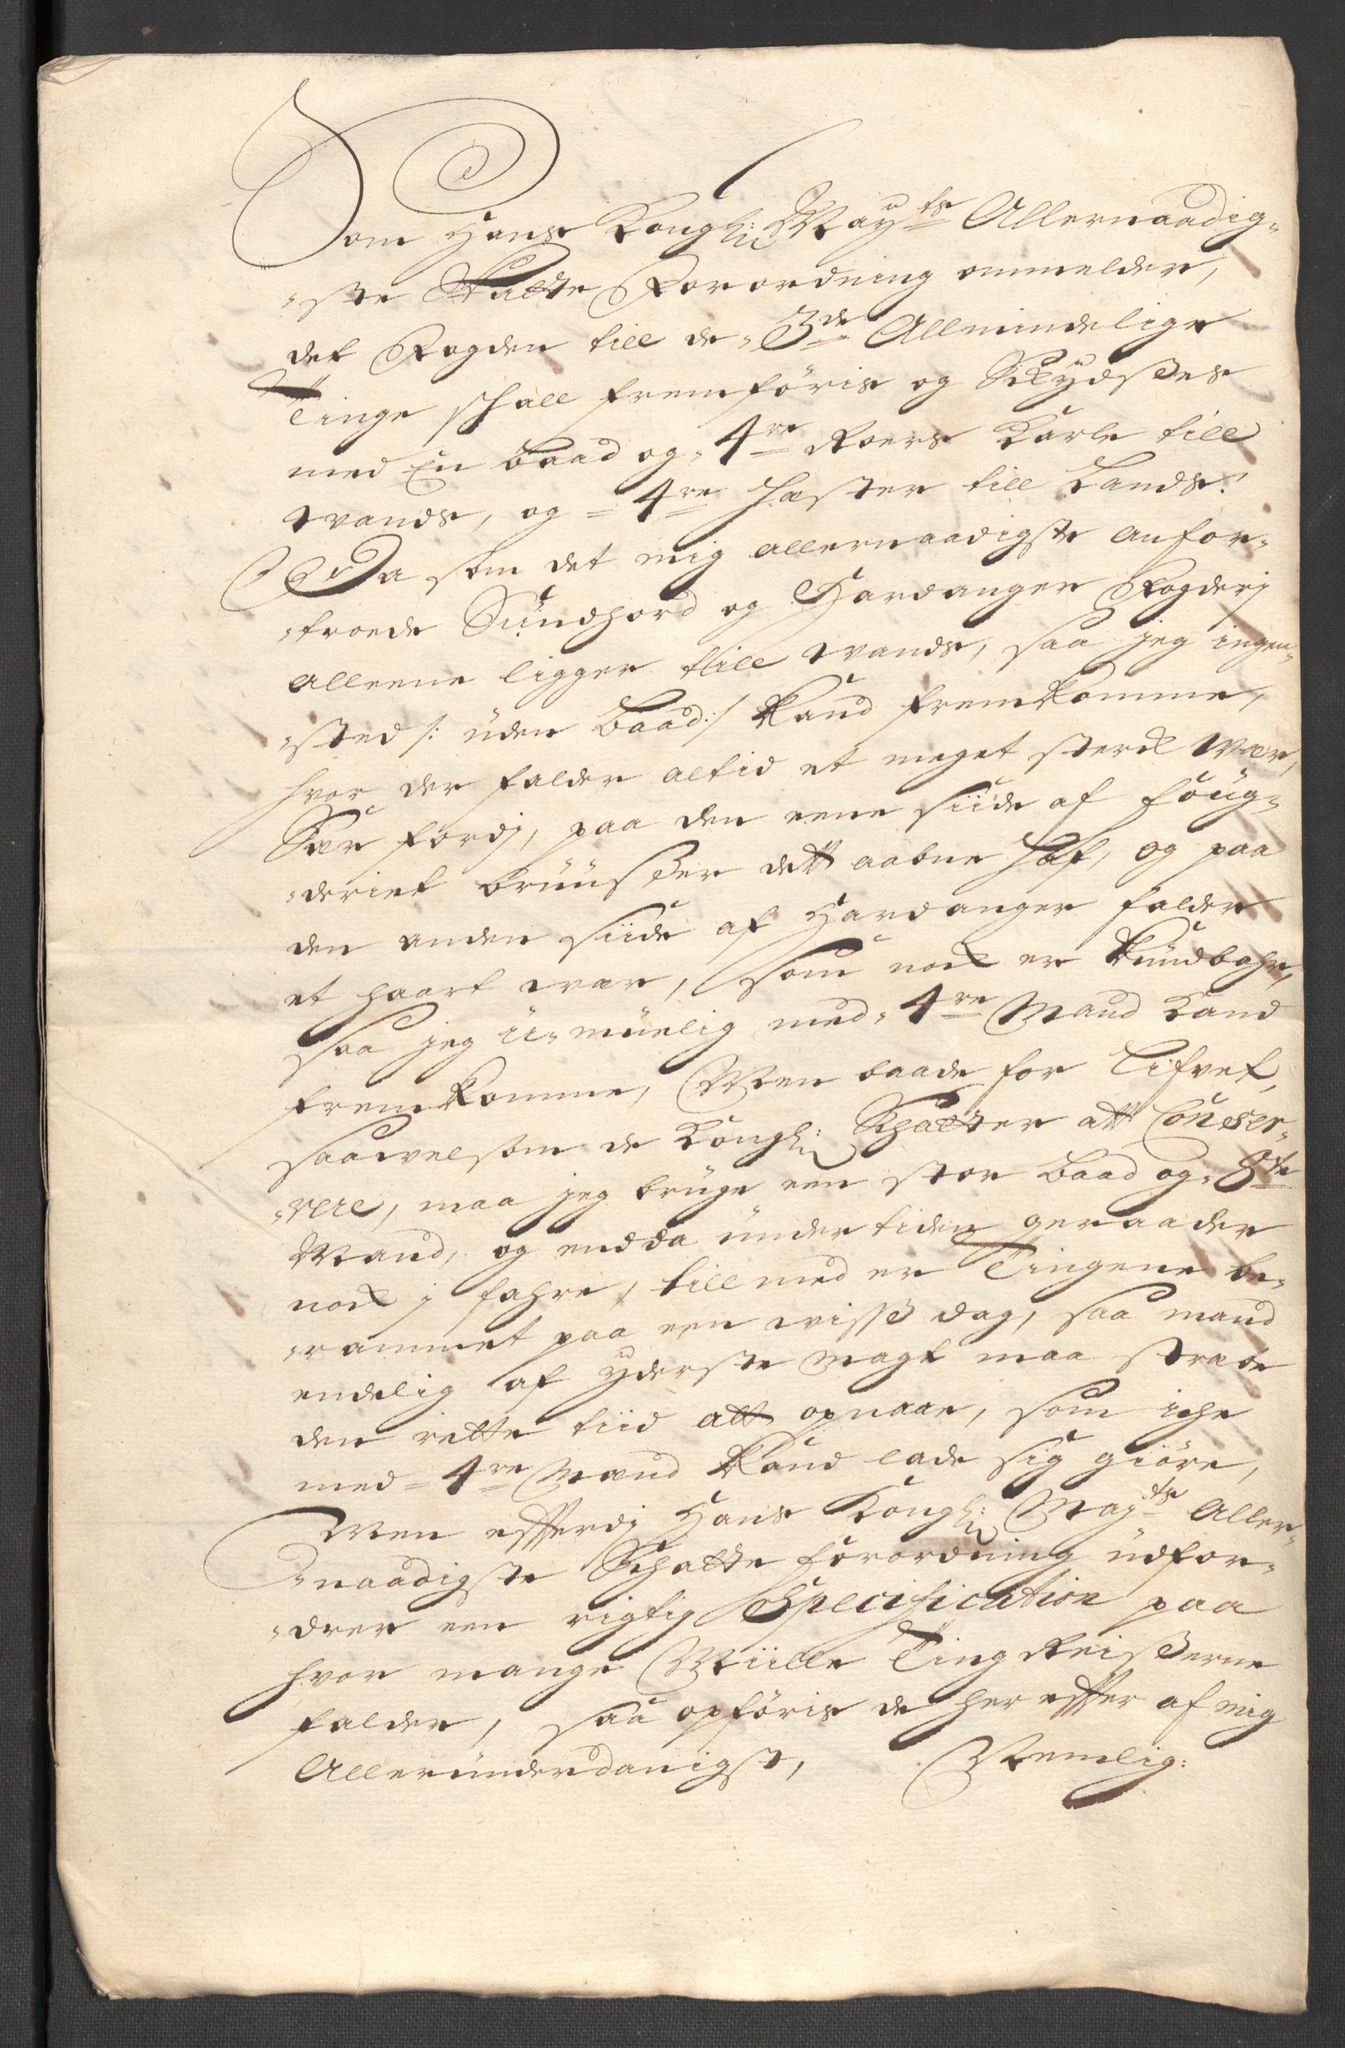 Som Hans Kongl: Mayts Allernaadig-
-ste Skatte Forordning ommelder,
det Fogden till de 3de Allmindelige
Tinge schall fremföris og Skydsßes
med En baad og 4re Roers Karle till
Vands, og 4re Hæster till Lands:
Da som det mig allernaadigste anfor-
-troede Sundhord og Hardanger Fogderj
alleene ligger till Vands, saa jeg ingen-
-sted /: uden baad :/ kand fremkomme,
hvor der falder altid et meget sterck Vær,
Sær fordj, paa den eene siide af foug-
-deriet bruusßer dett aabne Haf, og paa
den anden siide af Hardanger falder
et haart vær, som nock er kundbahr,
saa jeg u-muelig med 4re Mand kand
fremkomme, Men baade for Lifvet,
saavelsom de Kongl: Schatter att Conser-
-vere, maa jeg bruge een stor baad og 8te
Mand, og endda under tiden geraader
nock j fahre, till med er Tingene be-
-rammet paa een visß dag, saa mand
endelig af yderste magt maa stræbe
den rette tiid att opnaae, som iche
med 4re Mand kand lade sig giöre,
Men efferdj Hans Kongl: Mayts Aller-
-naadigste Schatte forordning udfor-
-drer een rigtig Specification paa
hvor mange Miille Ting Reißerne
falder, saa opföris de her effter af mig
Allerunderdanigst, Nemlig: